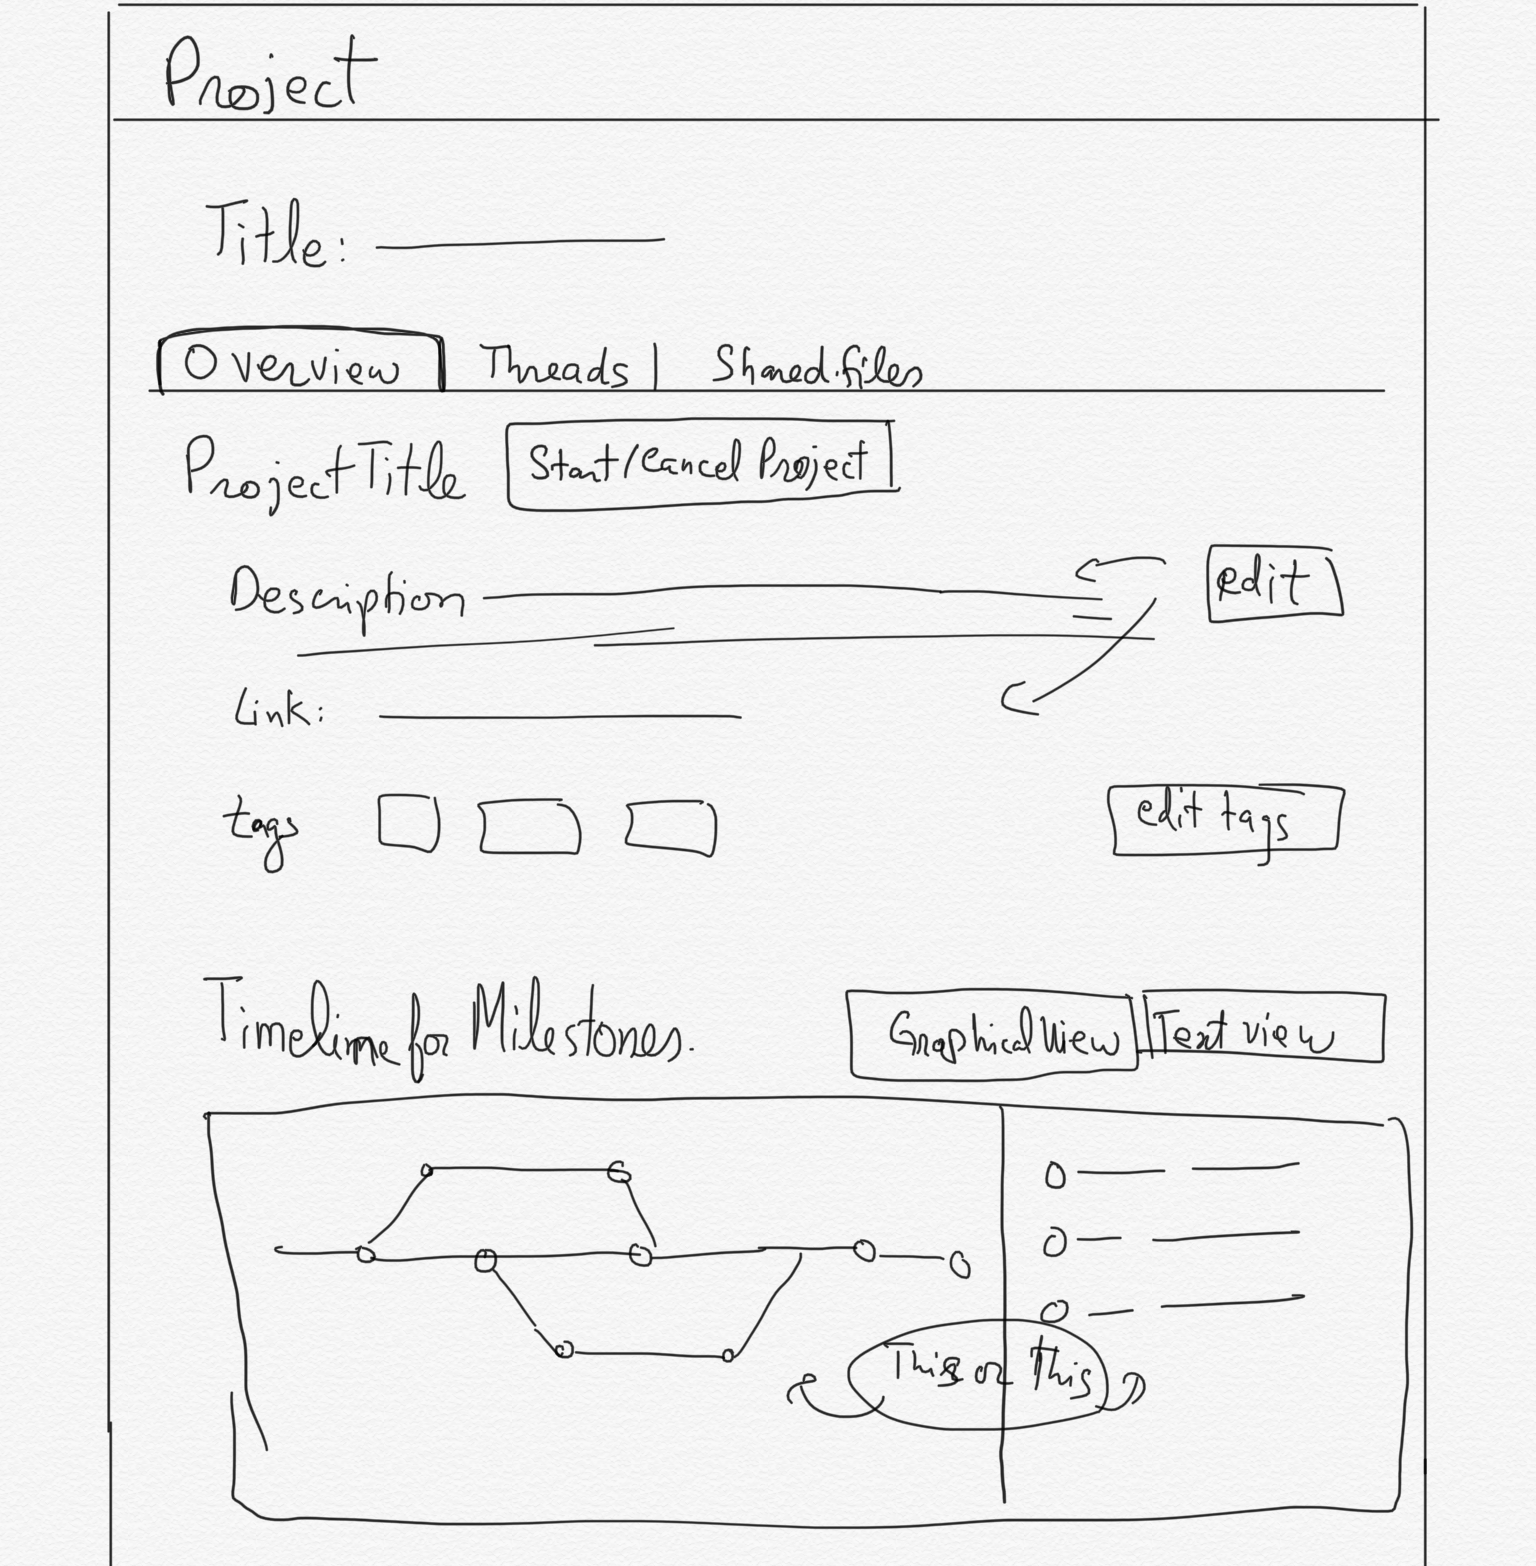 Project
Title:
Overview Threads | Shared files
Project Title Start/Cancel Project
Description edit
Link:
tags edit tags
Timeline for Milestones. Graphical View Text view
This or This